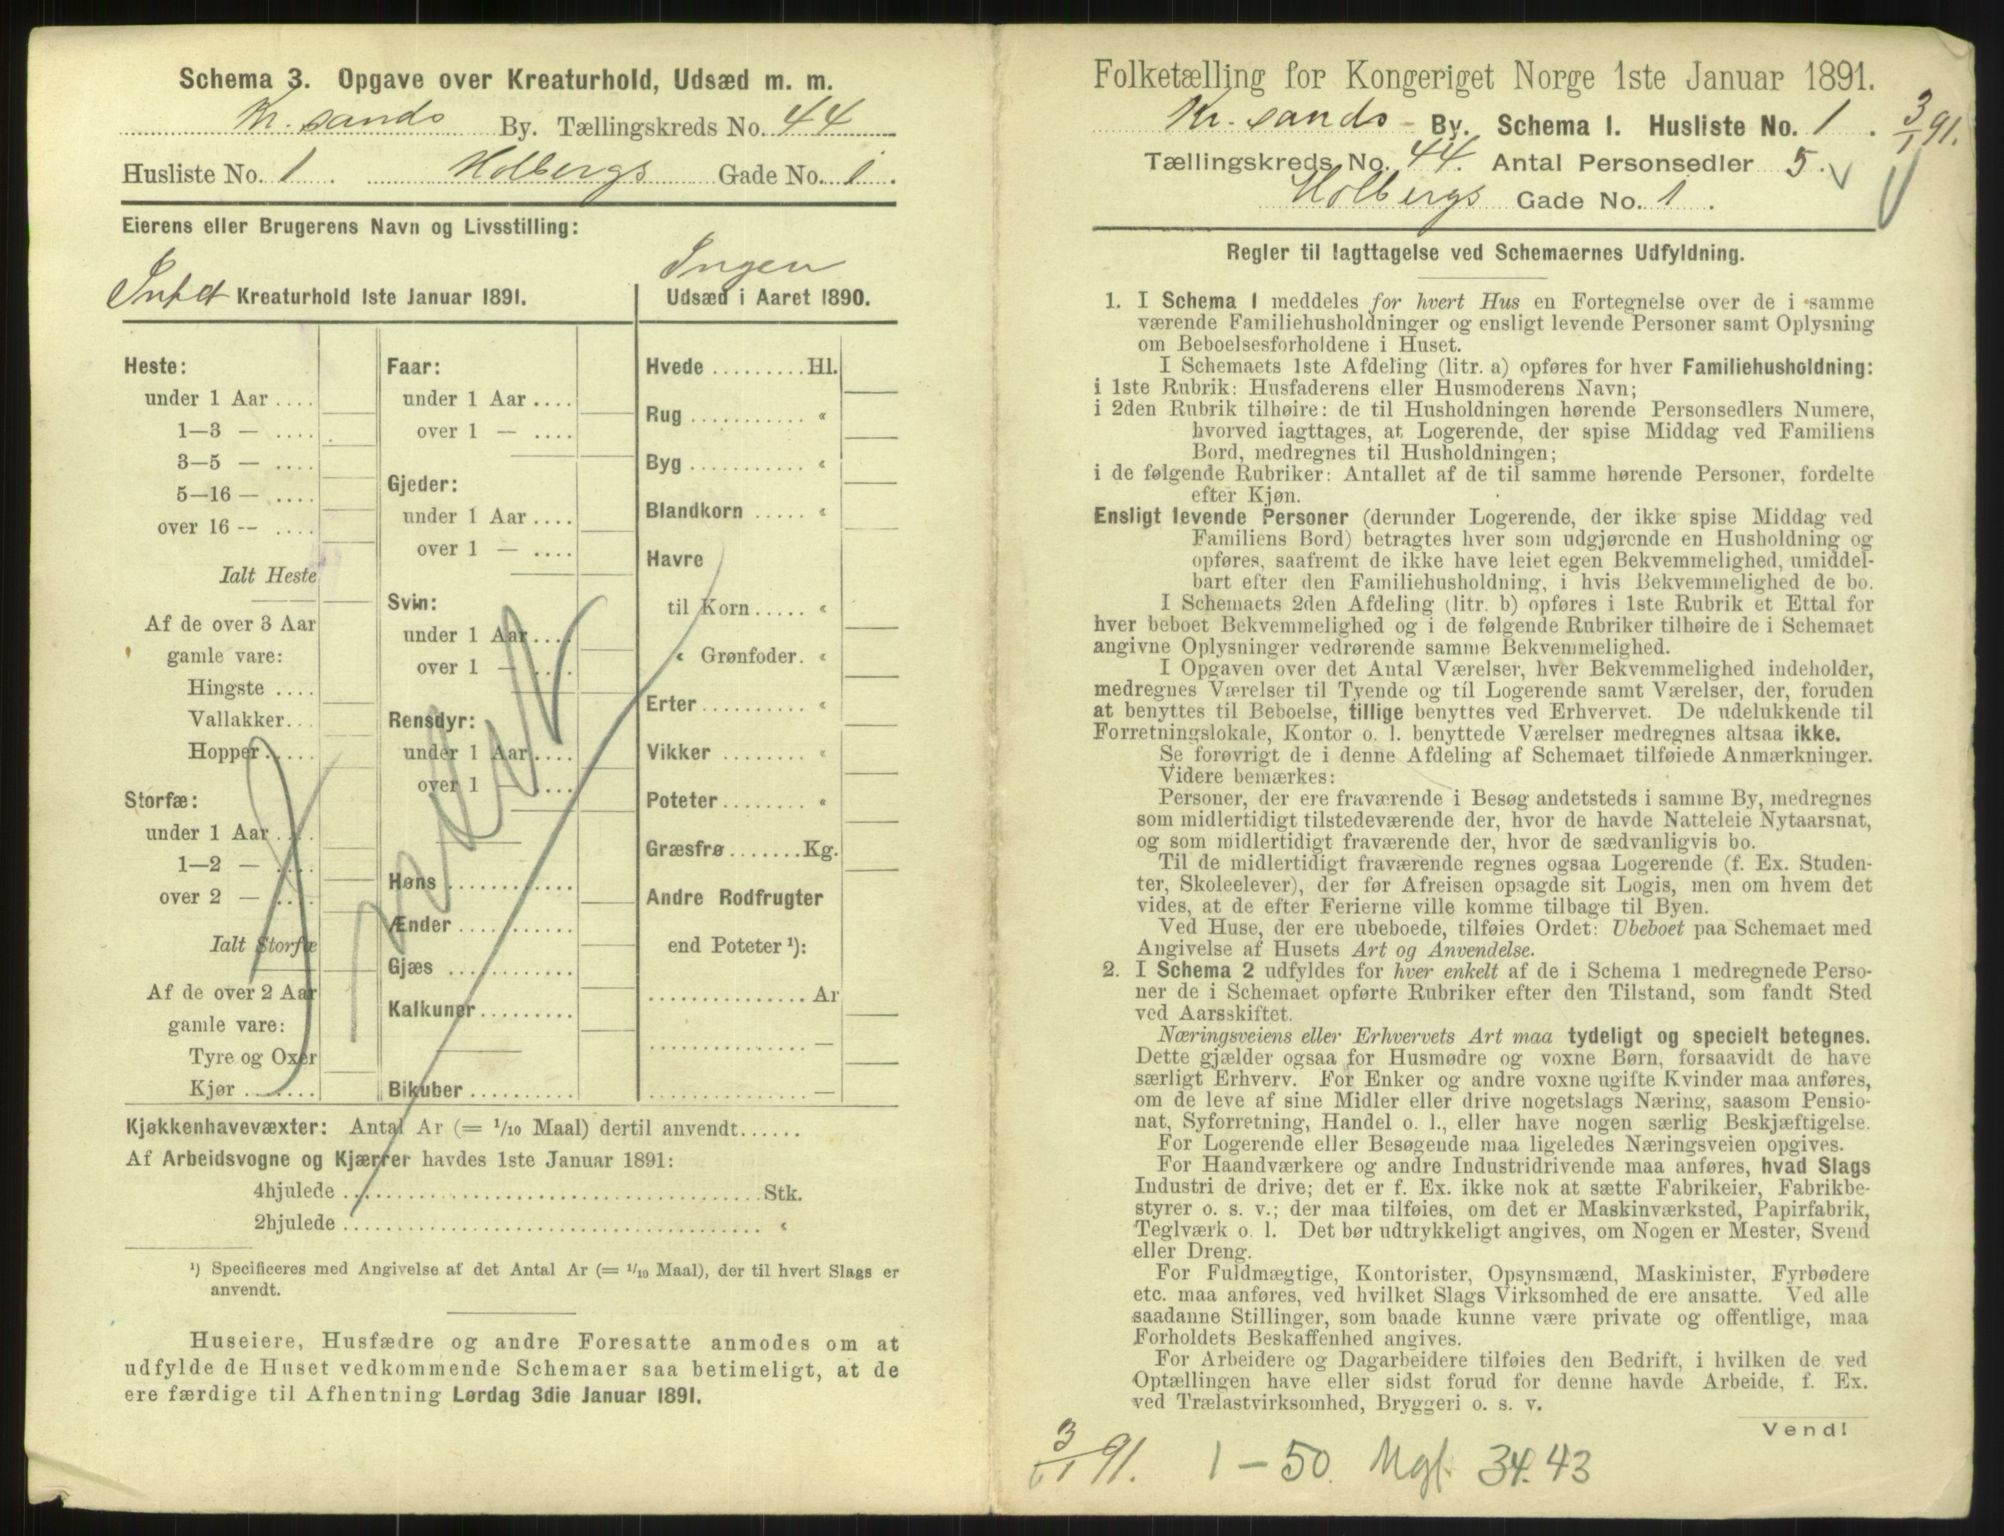 Schema 3. Opgave over Kreaturhold, Udsæd m. m.
Kr.sands By. Tællingskreds No. 44
Husliste No. 1. Holbergs Gade No. 1.
Eierens eller Brugerens Navn og Livsstilling:
Intet Kreaturhold 1ste Januar 1891.
Heste:
under 1 Aar ....
1—3 — ....
3—5 — ....
5—16 — ....
over 16 -- ....
Ialt Heste
Af de over 3 Aar
gamle vare:
Hingste ....
Vallakker...
Hopper.....
Storfæ:
under 1 Aar ....
1—2 — ....
over 2 — ....
Ialt Storfæ
Af de over 2 Aar
gamle vare:
Tyre og Oxer
Kjør ........
Faar:
under 1 Aar ....
over 1 — ....
Gjeder:
under 1 Aar ....
over 1 — ....
Svin:
under 1 Aar ....
over 1 — ....
Rensdyr:
under 1 Aar ....
over 1 — ....
Høns ............
Ænder ...........
Gjæs ............
Kalkuner.........
Bikuber ..........
Ingen
Udsæd i Aaret 1890.
Hvede .........Hl.
Rug ........... «
Byg ........... «
Blandkorn ..... «
Havre
til Korn ..... «
« Grønfoder. «
Erter.......... «
Vikker ........ «
Poteter........ «
Græsfrø.......Kg.
Andre Rodfrugter
end Poteter ¹):
...............Ar
............... —
............... —
Kjøkkenhavevæxter: Antal Ar (= 1/10 Maal) dertil anvendt......
Af Arbeidsvogne og Kjærrer havdes 1ste Januar 1891:
4hjulede ........................................Stk.
2hjulede ........................................ «
¹) Specificeres med Angivelse af det Antal Ar (= 1/10 Maal), der til hvert Slags er
anvendt.
Huseiere, Husfædre og andre Foresatte anmodes om at
udfylde de Huset vedkommende Schemaer saa betimeligt, at de
ere færdige til Afhentning Lørdag 3die Januar 1891.
Folketælling for Kongeriget Norge 1ste Januar 1891.
Kr.sands - By. Schema I. Husliste No. 1. 3/1 91.
Tællingskreds No. 44. Antal Personsedler 5.
Holbergs Gade No. 1.
Regler til Iagttagelse ved Schemaernes Udfyldning.
1. I Schema 1 meddeles for hvert Hus en Fortegnelse over de i samme
værende Familiehusholdninger og ensligt levende Personer samt Oplysning
om Beboelsesforholdene i Huset.
I Schemaets 1ste Afdeling (litr. a) opføres for hver Familiehusholdning:
i 1ste Rubrik: Husfaderens eller Husmoderens Navn;
i 2den Rubrik tilhøire: de til Husholdningen hørende Personsedlers Numere,
hvorved iagttages, at Logerende, der spise Middag ved Familiens
Bord, medregnes til Husholdningen;
i de følgende Rubriker: Antallet af de til samme hørende Personer, fordelte
efter Kjøn.
Ensligt levende Personer (derunder Logerende, der ikke spise Middag ved
Familiens Bord) betragtes hver som udgjørende en Husholdning og
opføres, saafremt de ikke have leiet egen Bekvemmelighed, umiddel-
bart efter den Familiehusholdning, i hvis Bekvemmelighed de bo.
I Schemaets 2den Afdeling (litr. b) opføres i 1ste Rubrik et Ettal for
hver beboet Bekvemmelighed og i de følgende Rubriker tilhøire de i Schemaet
angivne Oplysninger vedrørende samme Bekvemmelighed.
I Opgaven over det Antal Værelser, hver Bekvemmelighed indeholder,
medregnes Værelser til Tyende og til Logerende samt Værelser, der, foruden
at benyttes til Beboelse, tillige benyttes ved Erhvervet. De udelukkende til
Forretningslokale, Kontor o. l. benyttede Værelser medregnes altsaa ikke.
Se forøvrigt de i denne Afdeling af Schemaet tilføiede Anmærkninger.
Videre bemærkes:
Personer, der ere fraværende i Besøg andetsteds i samme By, medregnes
som midlertidigt tilstedeværende der, hvor de havde Natteleie Nytaarsnat,
og som midlertidigt fraværende der, hvor de sædvanligvis bo.
Til de midlertidigt fraværende regnes ogsaa Logerende (f. Ex. Studen-
ter, Skoleelever), der før Afreisen opsagde sit Logis, men om hvem det
vides, at de efter Ferierne ville komme tilbage til Byen.
Ved Huse, der ere ubeboede, tilføies Ordet: Ubeboet paa Schemaet med
Angivelse af Husets Art og Anvendelse.
2. I Schema 2 udfyldes for hver enkelt af de i Schema 1 medregnede Perso-
ner de i Schemaet opførte Rubriker efter den Tilstand, som fandt Sted
ved Aarsskiftet.
Næringsveiens eller Erhvervets Art maa tydeligt og specielt betegnes.
Dette gjælder ogsaa for Husmødre og voxne Børn, forsaavidt de have
særligt Erhverv. For Enker og andre voxne ugifte Kvinder maa anføres,
om de leve af sine Midler eller drive nogetslags Næring, saasom Pensio-
nat, Syforretning, Handel o. l., eller have nogen særlig Beskjæftigelse.
For Logerende eller Besøgende maa ligeledes Næringsveien opgives.
For Haandværkere og andre Industridrivende maa anføres, hvad Slags
Industri de drive; det er f. Ex. ikke nok at sætte Fabrikeier, Fabrikbe-
styrer o. s. v.; der maa tilføies, om det er Maskinværksted, Papirfabrik,
Teglværk o. l. Det bør udtrykkeligt angives, om Nogen er Mester, Svend
eller Dreng.
For Fuldmægtige, Kontorister, Opsynsmænd, Maskinister, Fyrbødere
etc. maa anføres, ved hvilket Slags Virksomhed de ere ansatte. Ved alle
saadanne Stillinger, som baade kunne være private og offentlige, maa
Forholdets Beskaffenhed angives.
For Arbeidere og Dagarbeidere tilføies den Bedrift, i hvilken de ved
Optællingen have eller sidst forud for denne havde Arbeide, f. Ex.
ved Trælastvirksomhed, Bryggeri o. s. v.
Vend!
3/1 91. 1-50. Mgl. 34.43